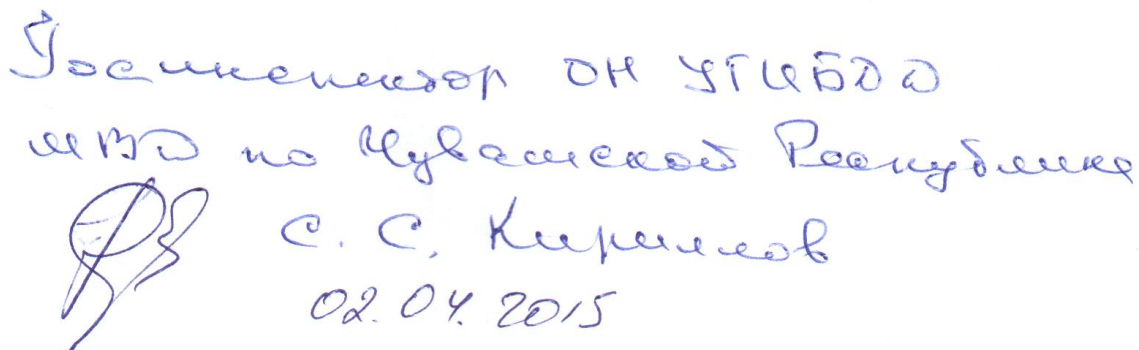 Госинспектор ОН УГИБДД
МВД по Чувашской Республике
С. С. Кириллов
02.04.2015